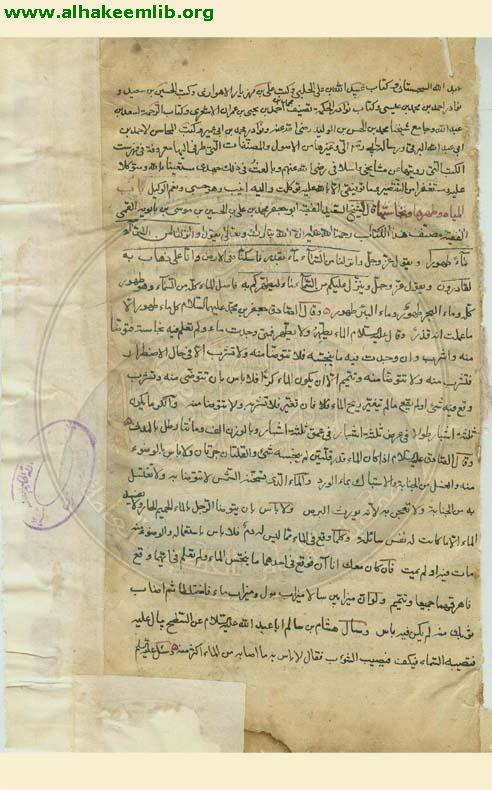 www.alhakeemlib.org
عبد الله السجستاني وكتاب عبيد الله بن علي الحلبي وكتب علي بن مهزيار الاهوازي وكتب الحسين بن سعيد و
نوادر احمد بن محمد بن عيسى وكتاب نوادر الحكمة تصنيف محمد بن احمد بن يحيى بن عمران الاشعري وكتاب الرحمة لسعد بن
عبد الله وجامع شيخنا محمد بن الحسن بن الوليد رضي الله عنه ونوادر محمد بن ابي عمير وكتب المحاسن لاحمد بن
ابي عبد الله البرقي ورسالة ابي رضي الله عنه الي وغيرها من الاصول والمصنفات التي طرقي اليها معروفة في فهرست
الكتب التي رويتها عن مشايخي واسلافي رضي الله عنهم وبالغت في ذلك جهدي مستعينا بالله ومتوكلا
عليه ومستغفرا من التقصير وما توفيقي الا بالله عليه توكلت واليه انيب وهو حسبي ونعم الوكيل باب
المياه وطهرها ونجاستها قال الشيخ السعيد الفقيه ابو جعفر محمد بن علي بن الحسين بن موسى بن بابويه القمي
الفقيه مصنف هذا الكتاب رحمة الله عليه ان الله تبارك وتعالى يقول وانزلنا من السماء
ماء طهورا ويقول عز وجل وانزلنا من السماء ماء بقدر فاسكناه في الارض وانا على ذهاب به
لقادرون ويقول عز وجل وينزل عليكم من السماء ماء ليطهركم به فاصل الماء كله من السماء وهو طهور
كله وماء البحر طهور وماء البئر طهور وقال الصادق جعفر بن محمد عليهما السلام كل ماء طهور الا
ما علمت انه قذر وقال عليه السلام الماء يطهر ولا يطهر فمتى وجدت ماء ولم تعلم فيه نجاسة فتوضأ
منه واشرب وان وجدت فيه ما ينجسه فلا تتوضأ منه ولا تشرب الا في حال الاضطرار
فتشرب منه ولا تتوضأ منه وتيمم الا ان يكون الماء كرا فلا باس بان تتوضى منه وتشرب
وقع فيه شيء اولم يقع مالم يتغير ريح الماء فان تغير فلا تشربه ولا تتوضأ منه والكر ما يكون
ثلثة اشبار طولا في عرض ثلثة اشبار في عمق ثلثة اشبار وبالوزن الف ومائتا رطل بالمدني
وقال الصادق عليه السلام اذا كان الماء قدر قلتين لم ينجسه شيء والقلتان جرتان ولا باس بالوضوء
منه والغسل من الجنابة والاستياك بماء الورد والماء الذي تسخنه الشمس لا تتوضأ به ولا تغتسل
به من الجنابة ولا تعجن به لانه يورث البرص ولا باس بان يتوضأ الرجل بالماء الحميم الحار ولا يفسد
الماء الا ما كانت له نفس سائلة وكلما وقع في الماء مما ليس له دم فلا باس باستعماله والوضوء منه
مات فيه اولم يمت فان كان معك انا آن فوقع في احدهما ما ينجس الماء ولم تعلم في ايهما وقع
فاهرقهما جميعا وتيمم ولو ان ميزابين سالا ميزاب بول وميزاب ماء فاختلطا ثم اصاب
ثوبك منه لم يكن فيه باس وسال هشام بن سالم ابا عبد الله عليه السلام عن السطح يبال عليه
فتصيبه السماء فيكف فيصيب الثوب فقال لا باس به ما اصابه من الماء اكثر منه وسئل عليه السلام